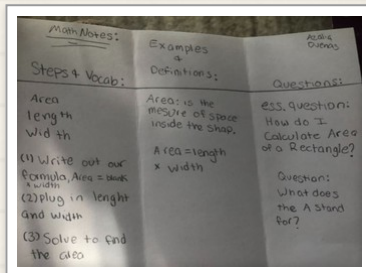 Math Notes:
Steps & Vocab:
Area
length
Width
(1) Write out our
formula, Area = blank
x width
(2) plug in lenght
and width
(3) Solve to find
the area
Examples
&
Definitions:
Area: is the
mesure of space
inside the shap.
Area = length
x width
Questions:
ess. question:
How do I
Calculate Area
of a Rectangle?
Question:
What does
the A stand
for?